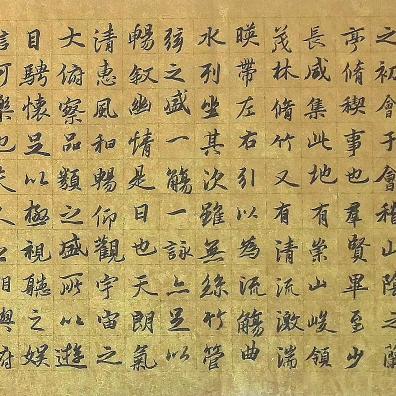 之初會于會稽山陰之蘭
亭脩禊事也羣賢畢至少
長咸集此地有崇山峻領
茂林脩竹又有清流激湍
暎帶左右引以為流觴曲
水列坐其次雖無絲竹管
弦之盛一觴一詠亦足以
暢叙幽情是日也天朗氣
清惠風和暢仰觀宇宙之
大俯察品類之盛所以遊
目騁懷足以極視聽之娛
信可樂也夫人之相與俯